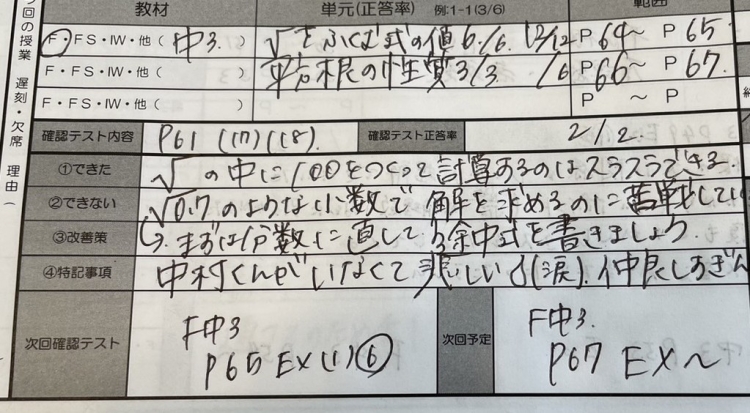 教材 単元(正答率) 例:1-1(3/6) 範囲
F・FS・IW・他( 中3. ) √をふくむ式の値 6/6. 12/12 P 64 ~ P 65
F・FS・IW・他( ) 平方根の性質 3/3 /6 P 66 ~ P 67.
F・FS・IW・他( ) P ~ P
回の授業 遅刻・欠席 理由(
確認テスト内容 P61 (17)(18). 確認テスト正答率 2/2.
①できた √の中に100をつくって計算するのはスラスラできる
②できない √0.7のような小数で解を求めるのに苦戦してい
③改善策 まずは分数に直して途中式を書きましょう.
④特記事項 中村くんがいなくて悲しい(涙). 仲良しすぎん
次回確認テスト F中3 P65 EX(1)⑥
次回予定 F中3. P67 EX~